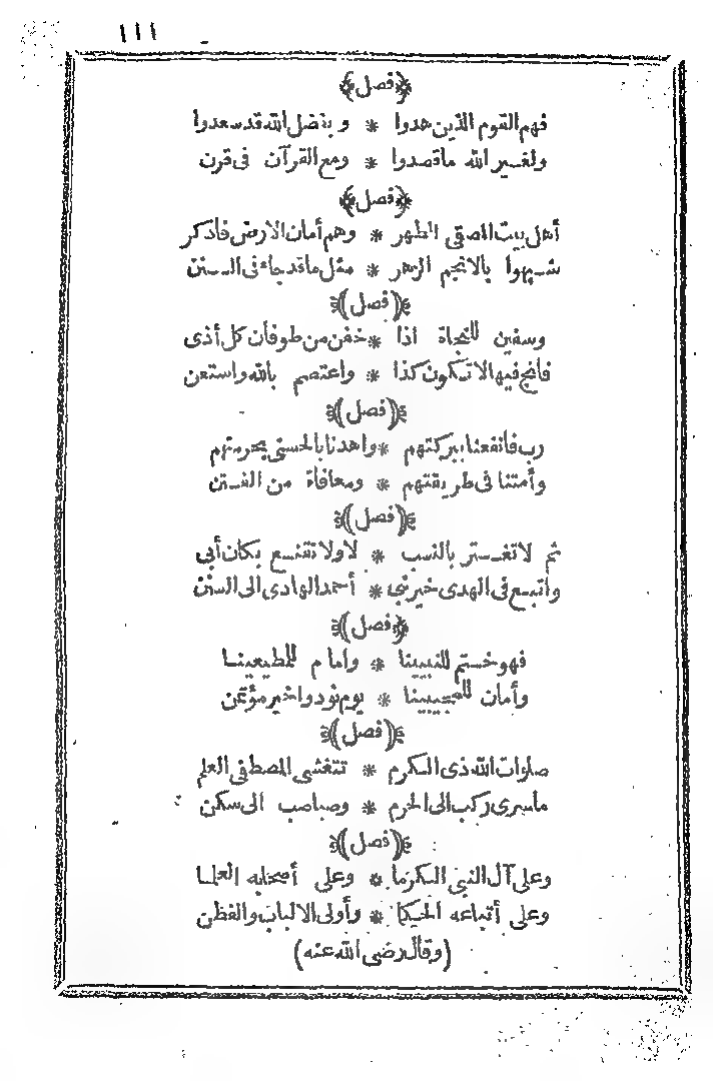 ١١١
﴿فصل﴾
فهم القوم الذين هدوا * وبفضل الله قد سعدوا
ولغير الله ما قصدوا * ومع القرآن فى قرن
﴿فصل﴾
أهل بيت المصقى الطهر * وهم أمان الارض فاذكر
شبهوا بالانجم الزهر * مثل ما قد جاء فى السنن
﴿فصل﴾
وسفين للنجاة اذا * خفن من طوفان كل أذى
فانج فيها لا تكون كذا * واعتصم بالله واستعن
﴿فصل﴾
رب فانفعنا ببركتهم * واهدنا بالحسنى بحرمتهم
وأمتنا فى طريقتهم * ومعافاة من الفتن
﴿فصل﴾
ثم لا تغتر بالنسب * لا ولا تقنع بكان أبي
واتبع فى الهدى خير نبي * أحمد الهادى الى السنن
﴿فصل﴾
فهو ختم للنبيينا * وامام للمطيعينا
وأمان للمجيبينا * يوم نودوا خير مؤتمن
﴿فصل﴾
صلوات الله ذى الكرم * تتغشى المصطفى العلم
ما سرى ركب الى الحرم * وصبا صب الى سكن
﴿فصل﴾
وعلى آل النبى الكرما * وعلى أصحابه العلما
وعلى أتباعه الحكما * وأولى الالباب والفطن
(وقال رضى الله عنه)